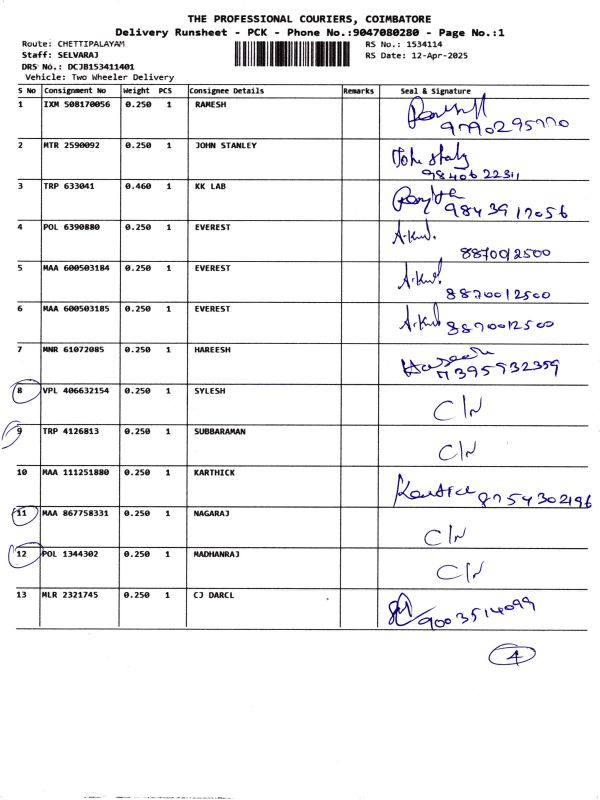 THE PROFESSIONAL COURIERS, COIMBATORE
Delivery Runsheet - PCK - Phone No.:9047080280 - Page No.:1
Route: CHETTIPALAYAM RS No.: 1534114
Staff: SELVARAJ RS Date: 12-Apr-2025
DRS No.: DCJB153411401
Vehicle: Two Wheeler Delivery
S No Consignment No Weight PCS Consignee Details Remarks Seal & Signature
1 IXM 508170056 0.250 1 RAMESH
9790295770
2 MTR 2590092 0.250 1 JOHN STANLEY John Stanly
9840622311
3 TRP 633041 0.460 1 KK LAB 9843917056
4 POL 6390880 0.250 1 EVEREST
8870012500
5 MAA 600503184 0.250 1 EVEREST
8870012500
6 MAA 600503185 0.250 1 EVEREST 8870012500
7 MNR 61072085 0.250 1 HAREESH
7395932359
8 VPL 406632154 0.250 1 SYLESH C/N
9 TRP 4126813 0.250 1 SUBBARAMAN C/N
10 MAA 111251880 0.250 1 KARTHICK 8754302196
11 MAA 867758331 0.250 1 NAGARAJ C/N
12 POL 1344302 0.250 1 MADHANRAJ C/N
13 MLR 2321745 0.250 1 CJ DARCL 9003514099
4